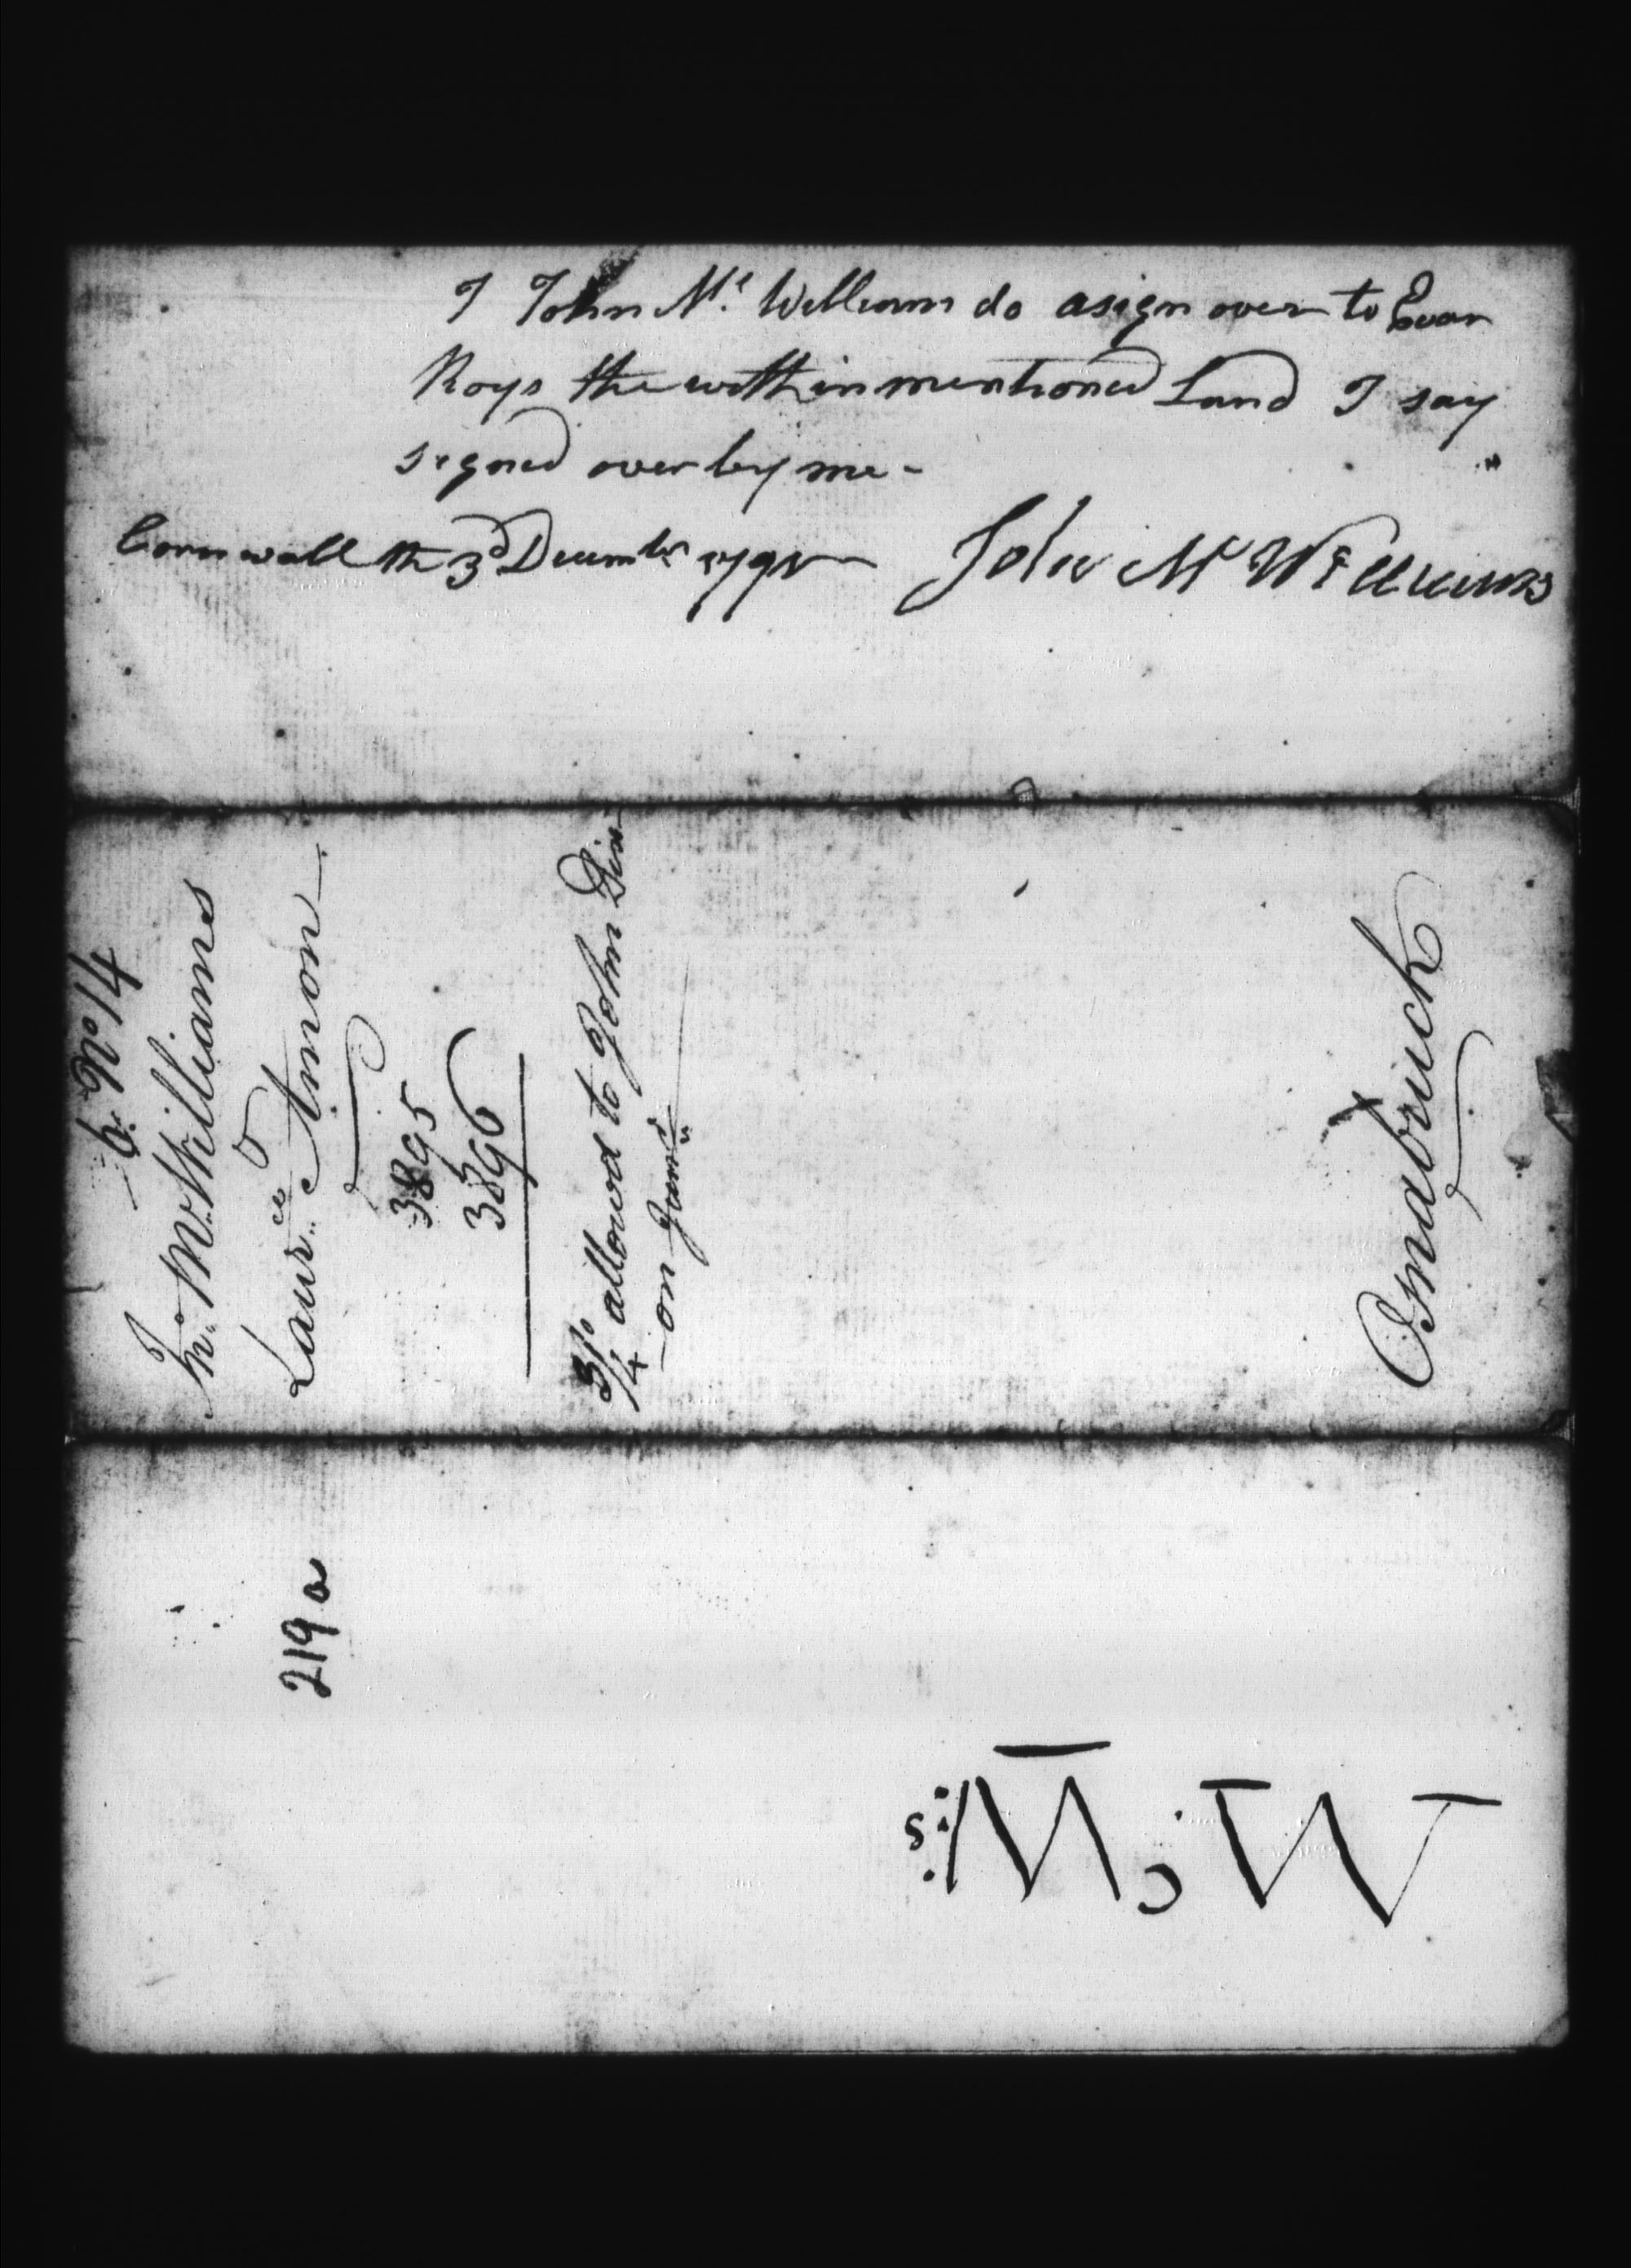 I John Mc. William do asign over to Evan
Roys the within mentioned Land I say
signed over by me -
Cornwall the 3d December 1795 John Mc Williams
6 No 14
Jno McWilliams
Laurce
3895
3896
3/4 allowed to John
on
Osnabruck
219 a
s: Mc W